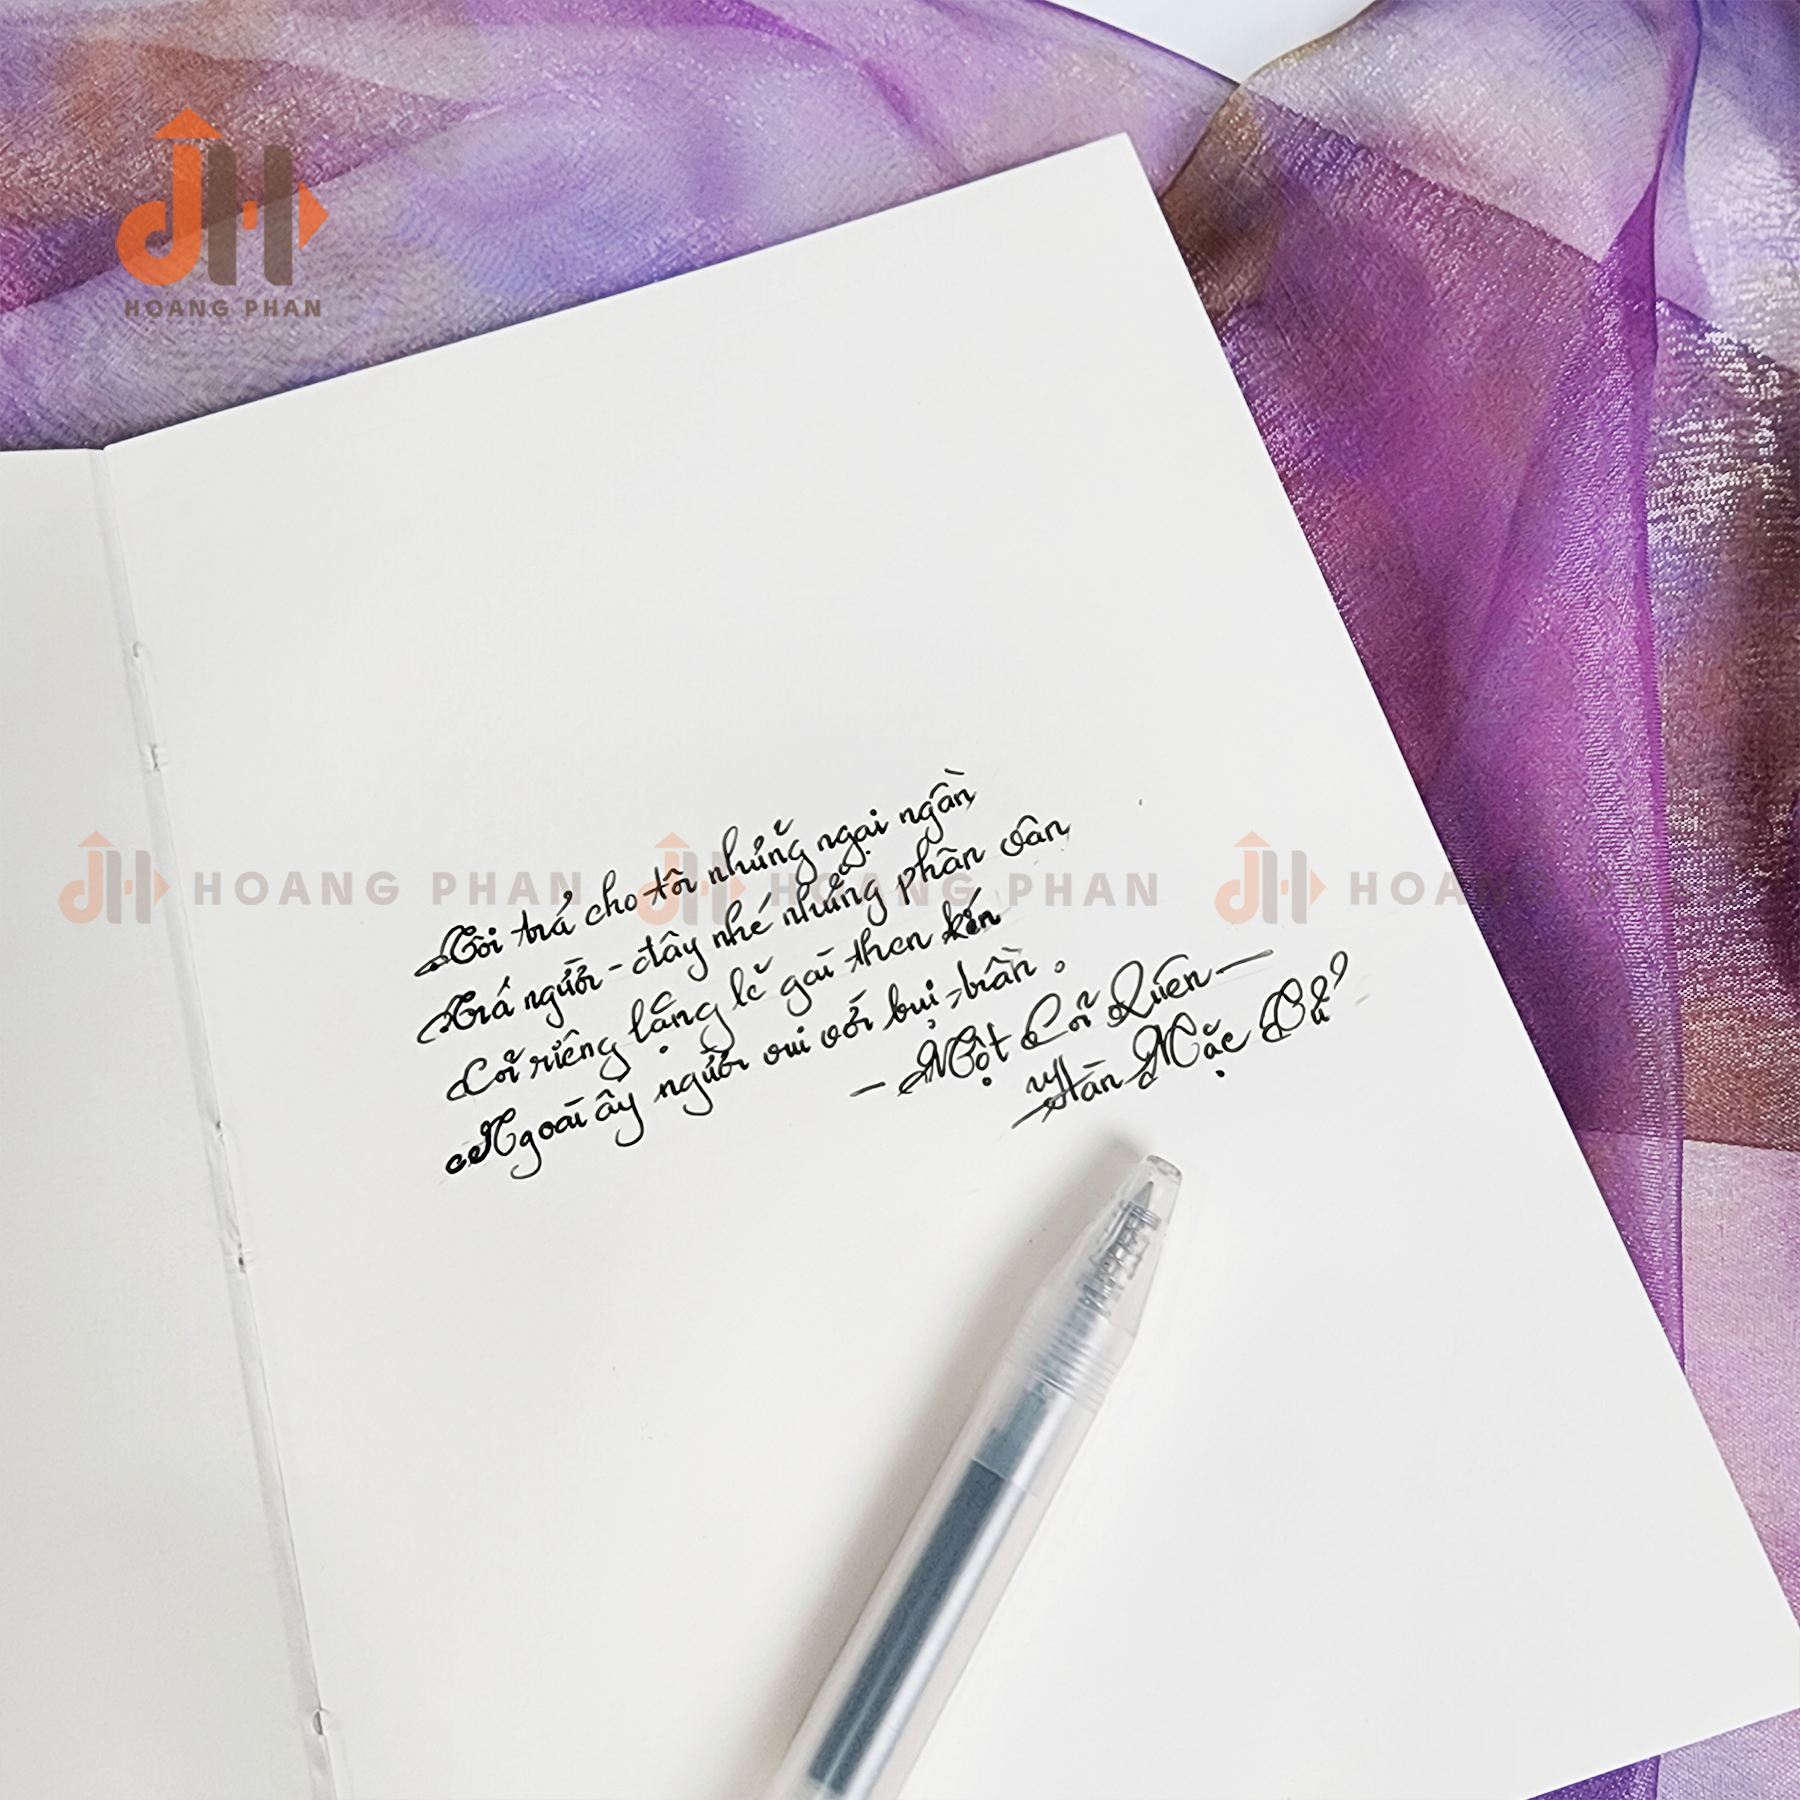 HOANG PHAN
Tôi trả cho tôi những ngại ngần
Trả người - đây nhé những phân vân
Cõi riêng lặng lẽ gài then kín
Ngoài ấy người vui với bụi trần.
- Một Cõi Quên -
Hàn Mặc Tử
HOANG PHAN HOANG PHAN HOANG PHAN